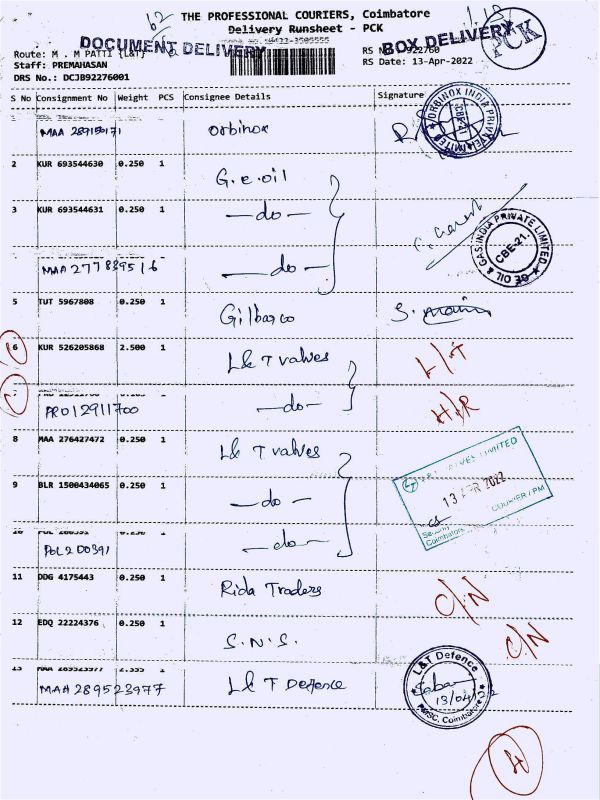 THE PROFESSIONAL COURIERS, Coimbatore
62
Delivery Runsheet - PCK
DOCUMENT DELIVERY
BOX DELIVERY
PCK
Route: M . M PATTI {L&T}
Staff: PREMAHASAN
RS Date: 13-Apr-2022
DRS No.: DCJB92276001
S No Consignment No Weight PCS Consignee Details Signature
MAA 289150171 Orbinox
ORBINOX INDIA PRIVATE LIMITED
CBE-21
2 KUR 693544630 0.250 1 G.e.oil
3 KUR 693544631 0.250 1 —do—
GE OIL & GAS INDIA PRIVATE LIMITED
CBE-21.
MAA 277839516 —do—
5 TUT 5967808 0.250 1 Gilbarco S.
6 KUR 526205868 2.500 1 L&T valves L/T
PRO12911700 —do— H/R
8 MAA 276427472 0.250 1 L&T valves
VALVES LIMITED
13 APR 2022
COURIER / PM
Coimbatore
9 BLR 1500434065 0.250 1 —do—
10
POL200391 —do—
11 DDG 4175443 0.250 1 Rida Traders C/N
12 EDQ 22224376 0.250 1 S.N.S. C/N
13 MAA 289523977
MAA289523977 L&T Defence
L&T Defence
13/04/22
PMSC, Coimbatore